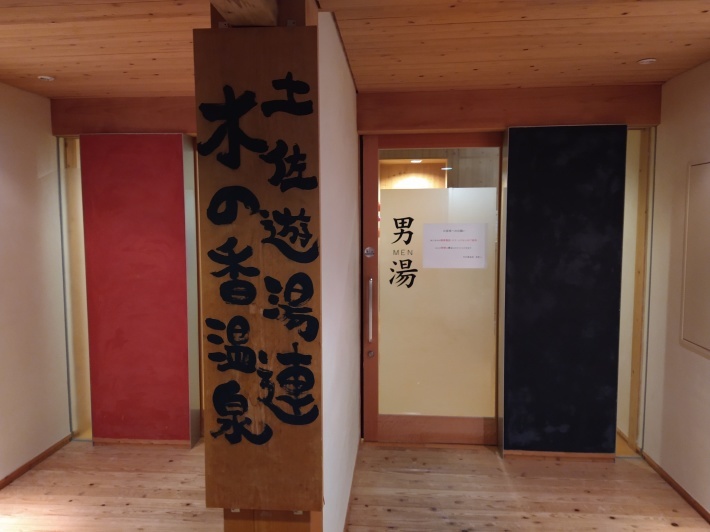 土佐遊湯連
水の香温泉
男
MEN
湯